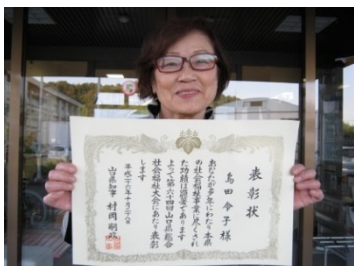 表彰状
島田令子様
あなたが多年にわたり本県
の社会福祉事業に尽くされ
た功績は顕著であります
よって第六十四回山口県総合
社会福祉大会にあたり表彰
します
平成二十六年十月二十八日
山口県知事 村岡嗣政